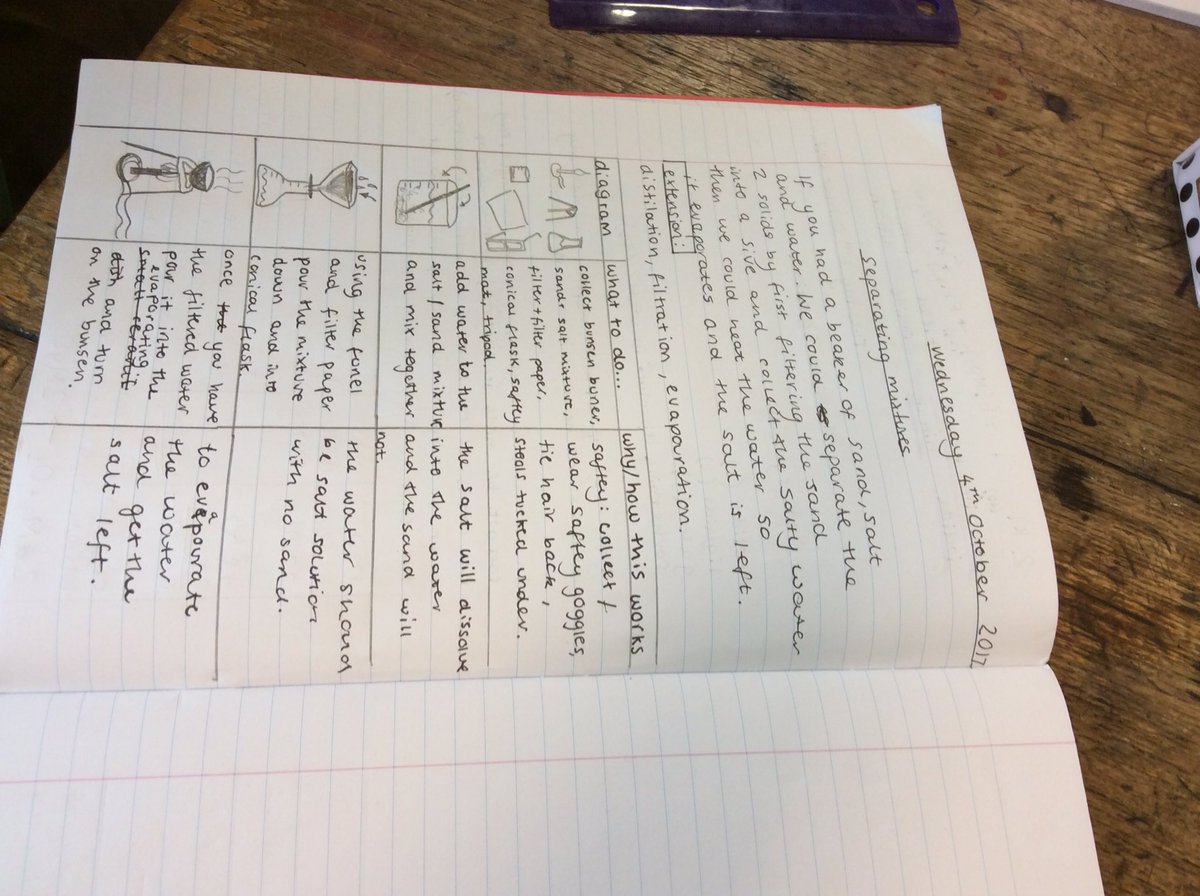 wednesday 4th October 2017
separating mixtures
If you had a beaker of sand, salt
and water. We could separate the
2 solids by first filtering the sand
into a sive and collect the salty water
then we could heat the water so
it evaporates and the salt is left.
extension:
distilation, filtration, evapouration.
diagram
what to do...
why/how this works
collect bunsen buner,
sand+salt mixture,
filter+filter paper,
conical flask, saftey
mat, tripod
saftey: collect /
wear saftey goggles,
tie hair back,
stools tucked under.
add water to the
salt/sand mixture
and mix together
the salt will dissolve
into the water
and the sand will
not
using the funel
and filter paper
pour the mixture
down and into
conical flask
the water should
be salt solution
with no sand.
once you have
the filtered water
pour it into the
evaporating
dish and turn
on the bunsen.
to evapourate
the water
and get the
salt left.